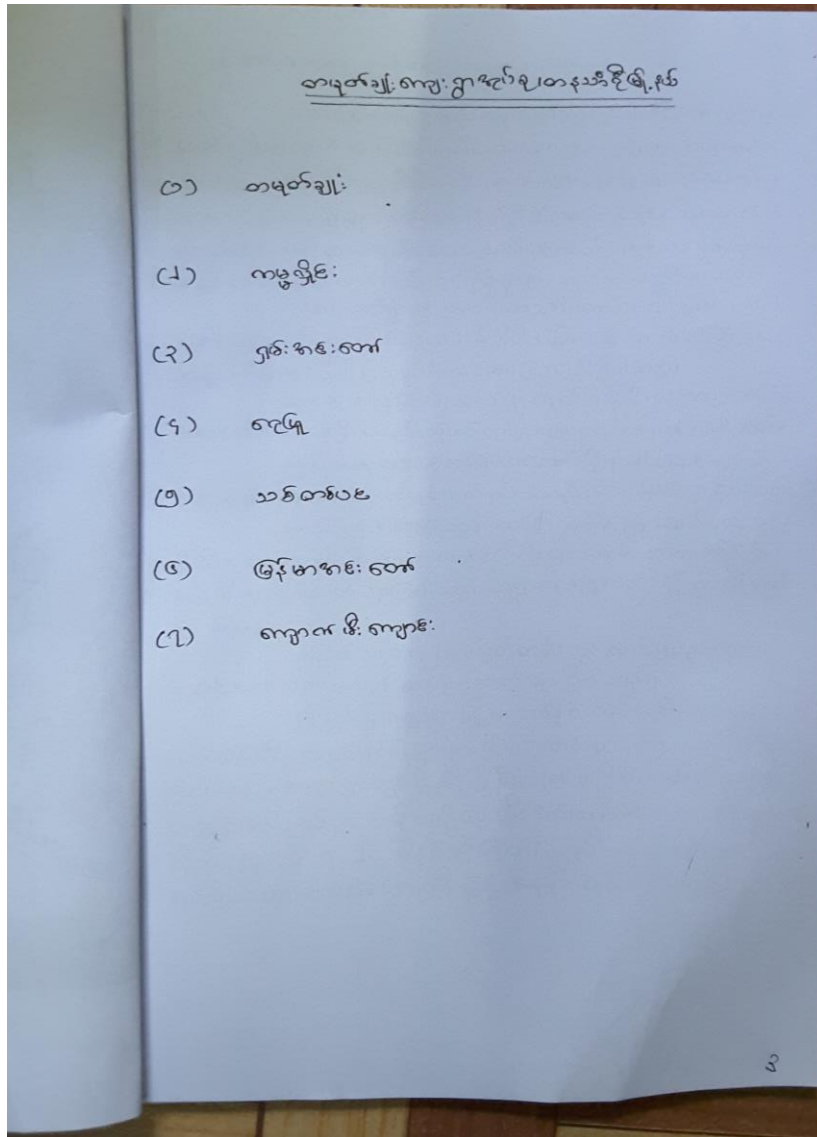 တမုတ်ချုံးကျေးရွာအုပ်စု၊တနင်္သာရီမြို့နယ်
(၁) တမုတ်ချုံး
(၂) ကမ္မလှိုင်း
(၃) ရှမ်းအင်းတော်
(၄) ရေဖြူ
(၅) သစ်တစ်ပင်
(၆) မြန်မာအင်းတော်
(၇) ကျောက်ဖီးကျောင်း
3